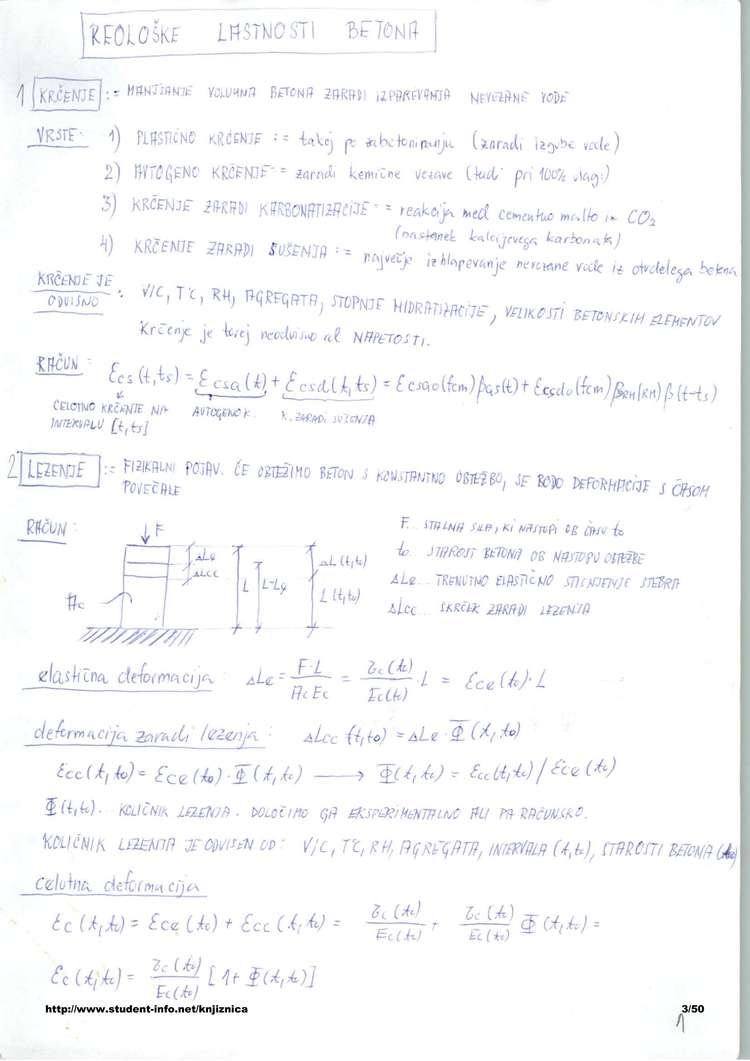 REOLOŠKE LASTNOSTI BETONA
1 KRČENJE := MANJŠANJE VOLUMNA BETONA ZARADI IZPAREVANJA NEVEZANE VODE
VRSTE: 1) PLASTIČNO KRČENJE := takoj po zabetoniranju (zaradi izgube vode)
2) AVTOGENO KRČENJE := zaradi kemične vezave (tudi pri 100% vlagi)
3) KRČENJE ZARADI KARBONATIZACIJE := reakcija med cementno malto in CO2
(nastanek kalcijevega karbonata)
4) KRČENJE ZARADI SUŠENJA := največje izhlapevanje nevezane vode iz otrdelega betona
KRČENJE JE
ODVISNO : V/C, T°C, RH, AGREGATA, STOPNJE HIDRATIZACIJE, VELIKOSTI BETONSKIH ELEMENTOV
Krčenje je torej neodvisno od NAPETOSTI.
RAČUN: εcs(t,ts) = εcsa(t) + εcsd(t,ts) = εcsa0(fcm) βas(t) + εcsd0(fcm) βRH(RH) β(t-ts)
CELOTNO KRČENJE NA AVTOGENO K. K. ZARADI SUŠENJA
INTERVALU [t,ts]
2 LEZENJE := FIZIKALNI POJAV. ČE OBTEŽIMO BETON S KONSTANTNO OBTEŽBO, SE BODO DEFORMACIJE S ČASOM
POVEČALE
RAČUN:
F
ΔLe
ΔLcc
L
L-Le
ΔL(t,t0)
L(t,t0)
Ac
F... STALNA SILA, KI NASTOPI OB ČASU t0
t0... STAROST BETONA OB NASTOPU OBTEŽBE
ΔLe... TRENUTNO ELASTIČNO STISNJENJE STEBRA
ΔLcc... SKRČEK ZARADI LEZENJA
elastična deformacija: ΔLe = F·L / AcEc = σc(t0) / Ec(t0) · L = εce(t0)·L
deformacija zaradi lezenja: ΔLcc(t,t0) = ΔLe · Φ(t,t0)
εcc(t,t0) = εce(t0) · Φ(t,t0) ⟶ Φ(t,t0) = εcc(t,t0) / εce(t0)
Φ(t,t0). KOLIČNIK LEZENJA. DOLOČIMO GA EKSPERIMENTALNO ALI PA RAČUNSKO.
KOLIČNIK LEZENJA JE ODVISEN OD: V/C, T°C, RH, AGREGATA, INTERVALA (t,t0), STAROSTI BETONA (t0)
celotna deformacija
εc(t,t0) = εce(t0) + εcc(t,t0) = σc(t0) / Ec(t0) + σc(t0) / Ec(t0) Φ(t,t0) =
εc(t,t0) = σc(t0) / Ec(t0) [1+ Φ(t,t0)]
http://www.student-info.net/knjiznica 3/50
1